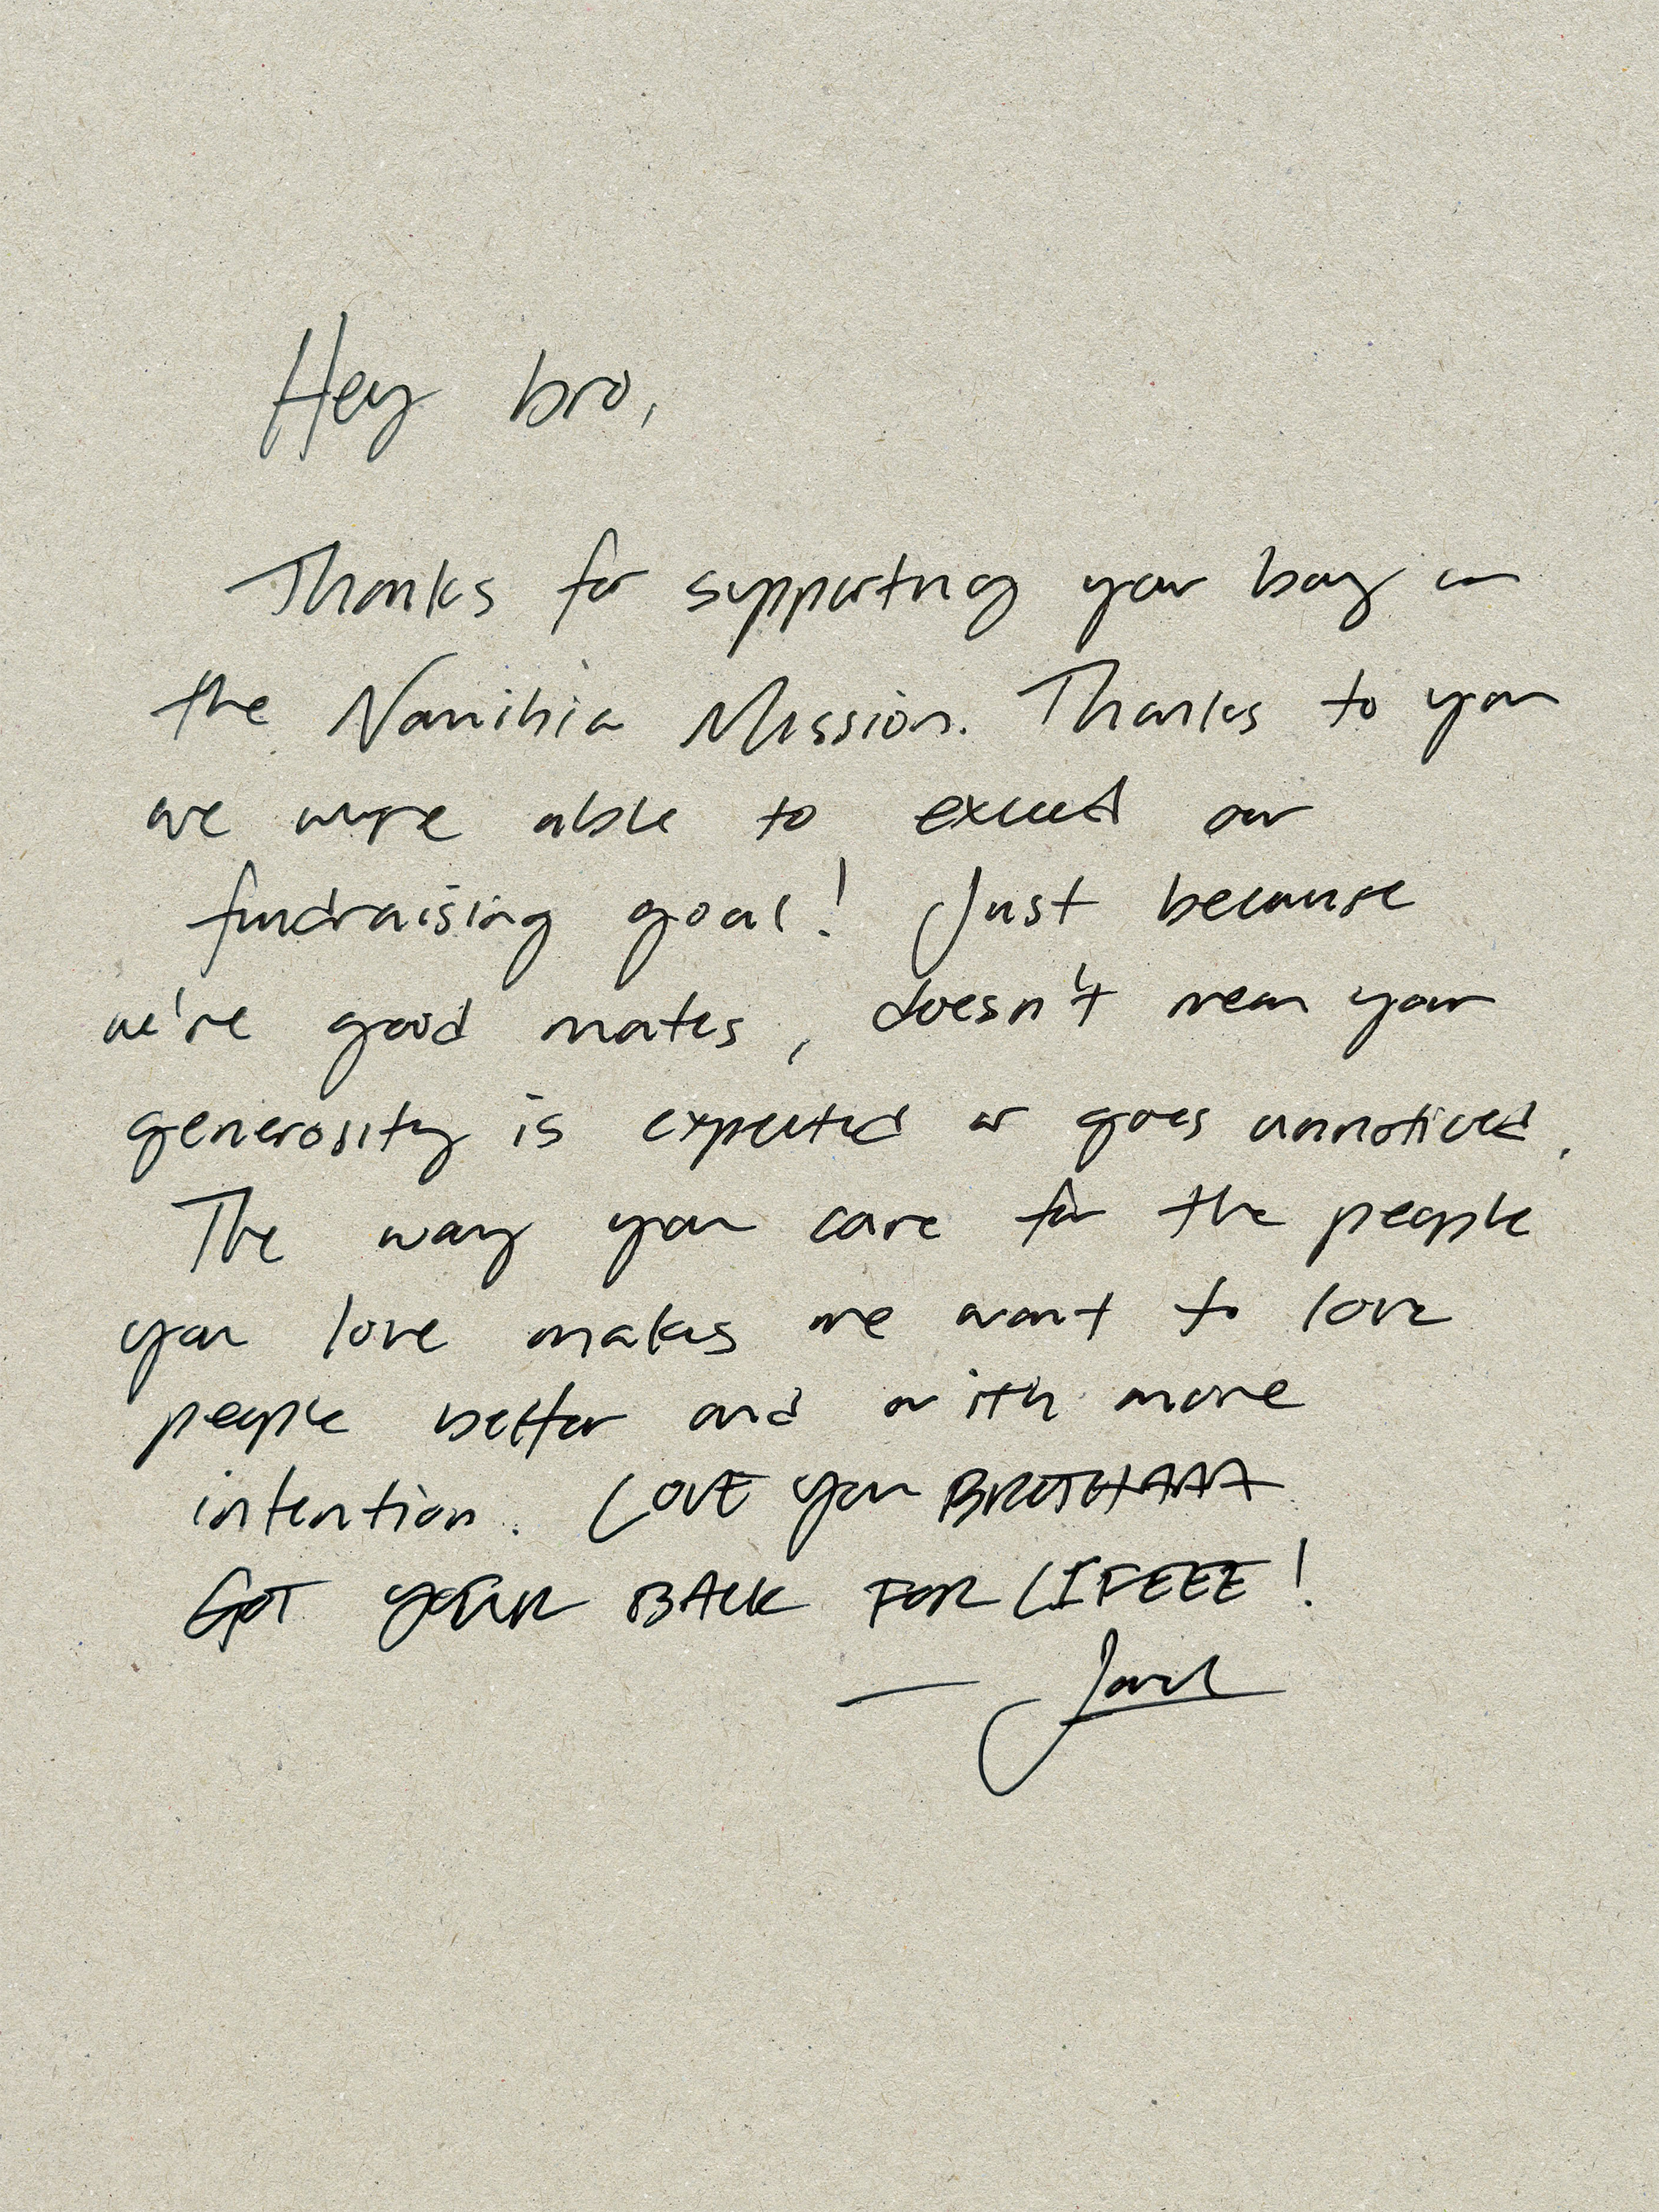 Hey bro,
Thanks for supporting your boy on
the Namibia Mission. Thanks to you
we were able to exceed our
fundraising goal! Just because
we're good mates, doesn't mean your
generosity is expected or goes unnoticed.
The way you care for the people
you love makes me want to love
people better and with more
intention. LOVE you BROTHAAA
GOT YOUR BACK FOR LIFEEE!
—